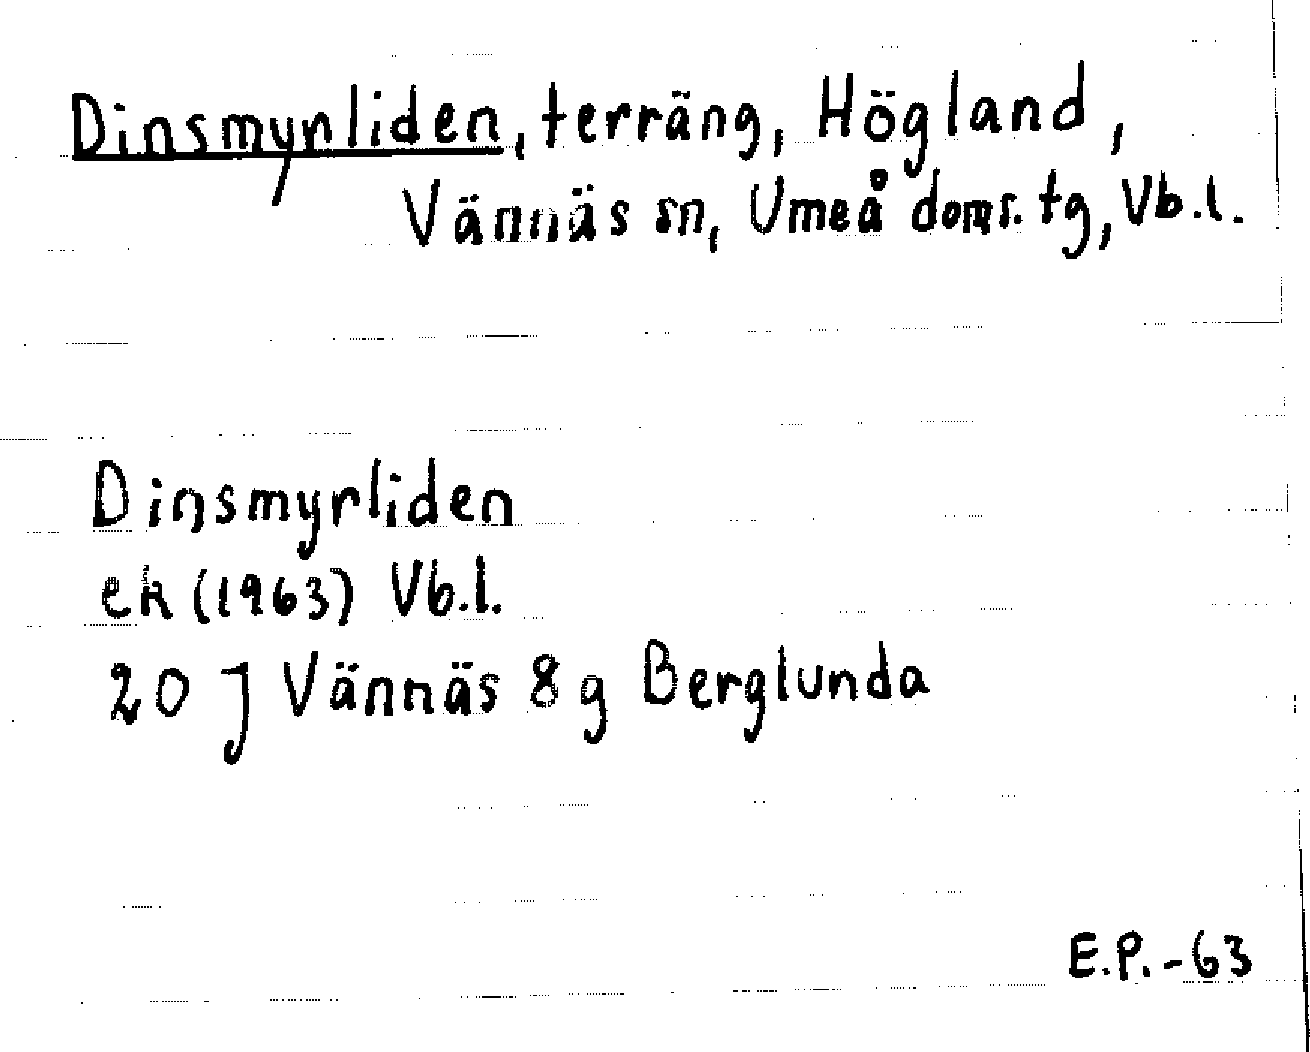 Dinsmyrliden, terräng, Högland,
Vännäs sn, Umeå doms. tg, Vb.l.
Dinsmyrliden
ek (1963) Vb.l.
20 J Vännäs 8 g Berglunda
E.P.-63